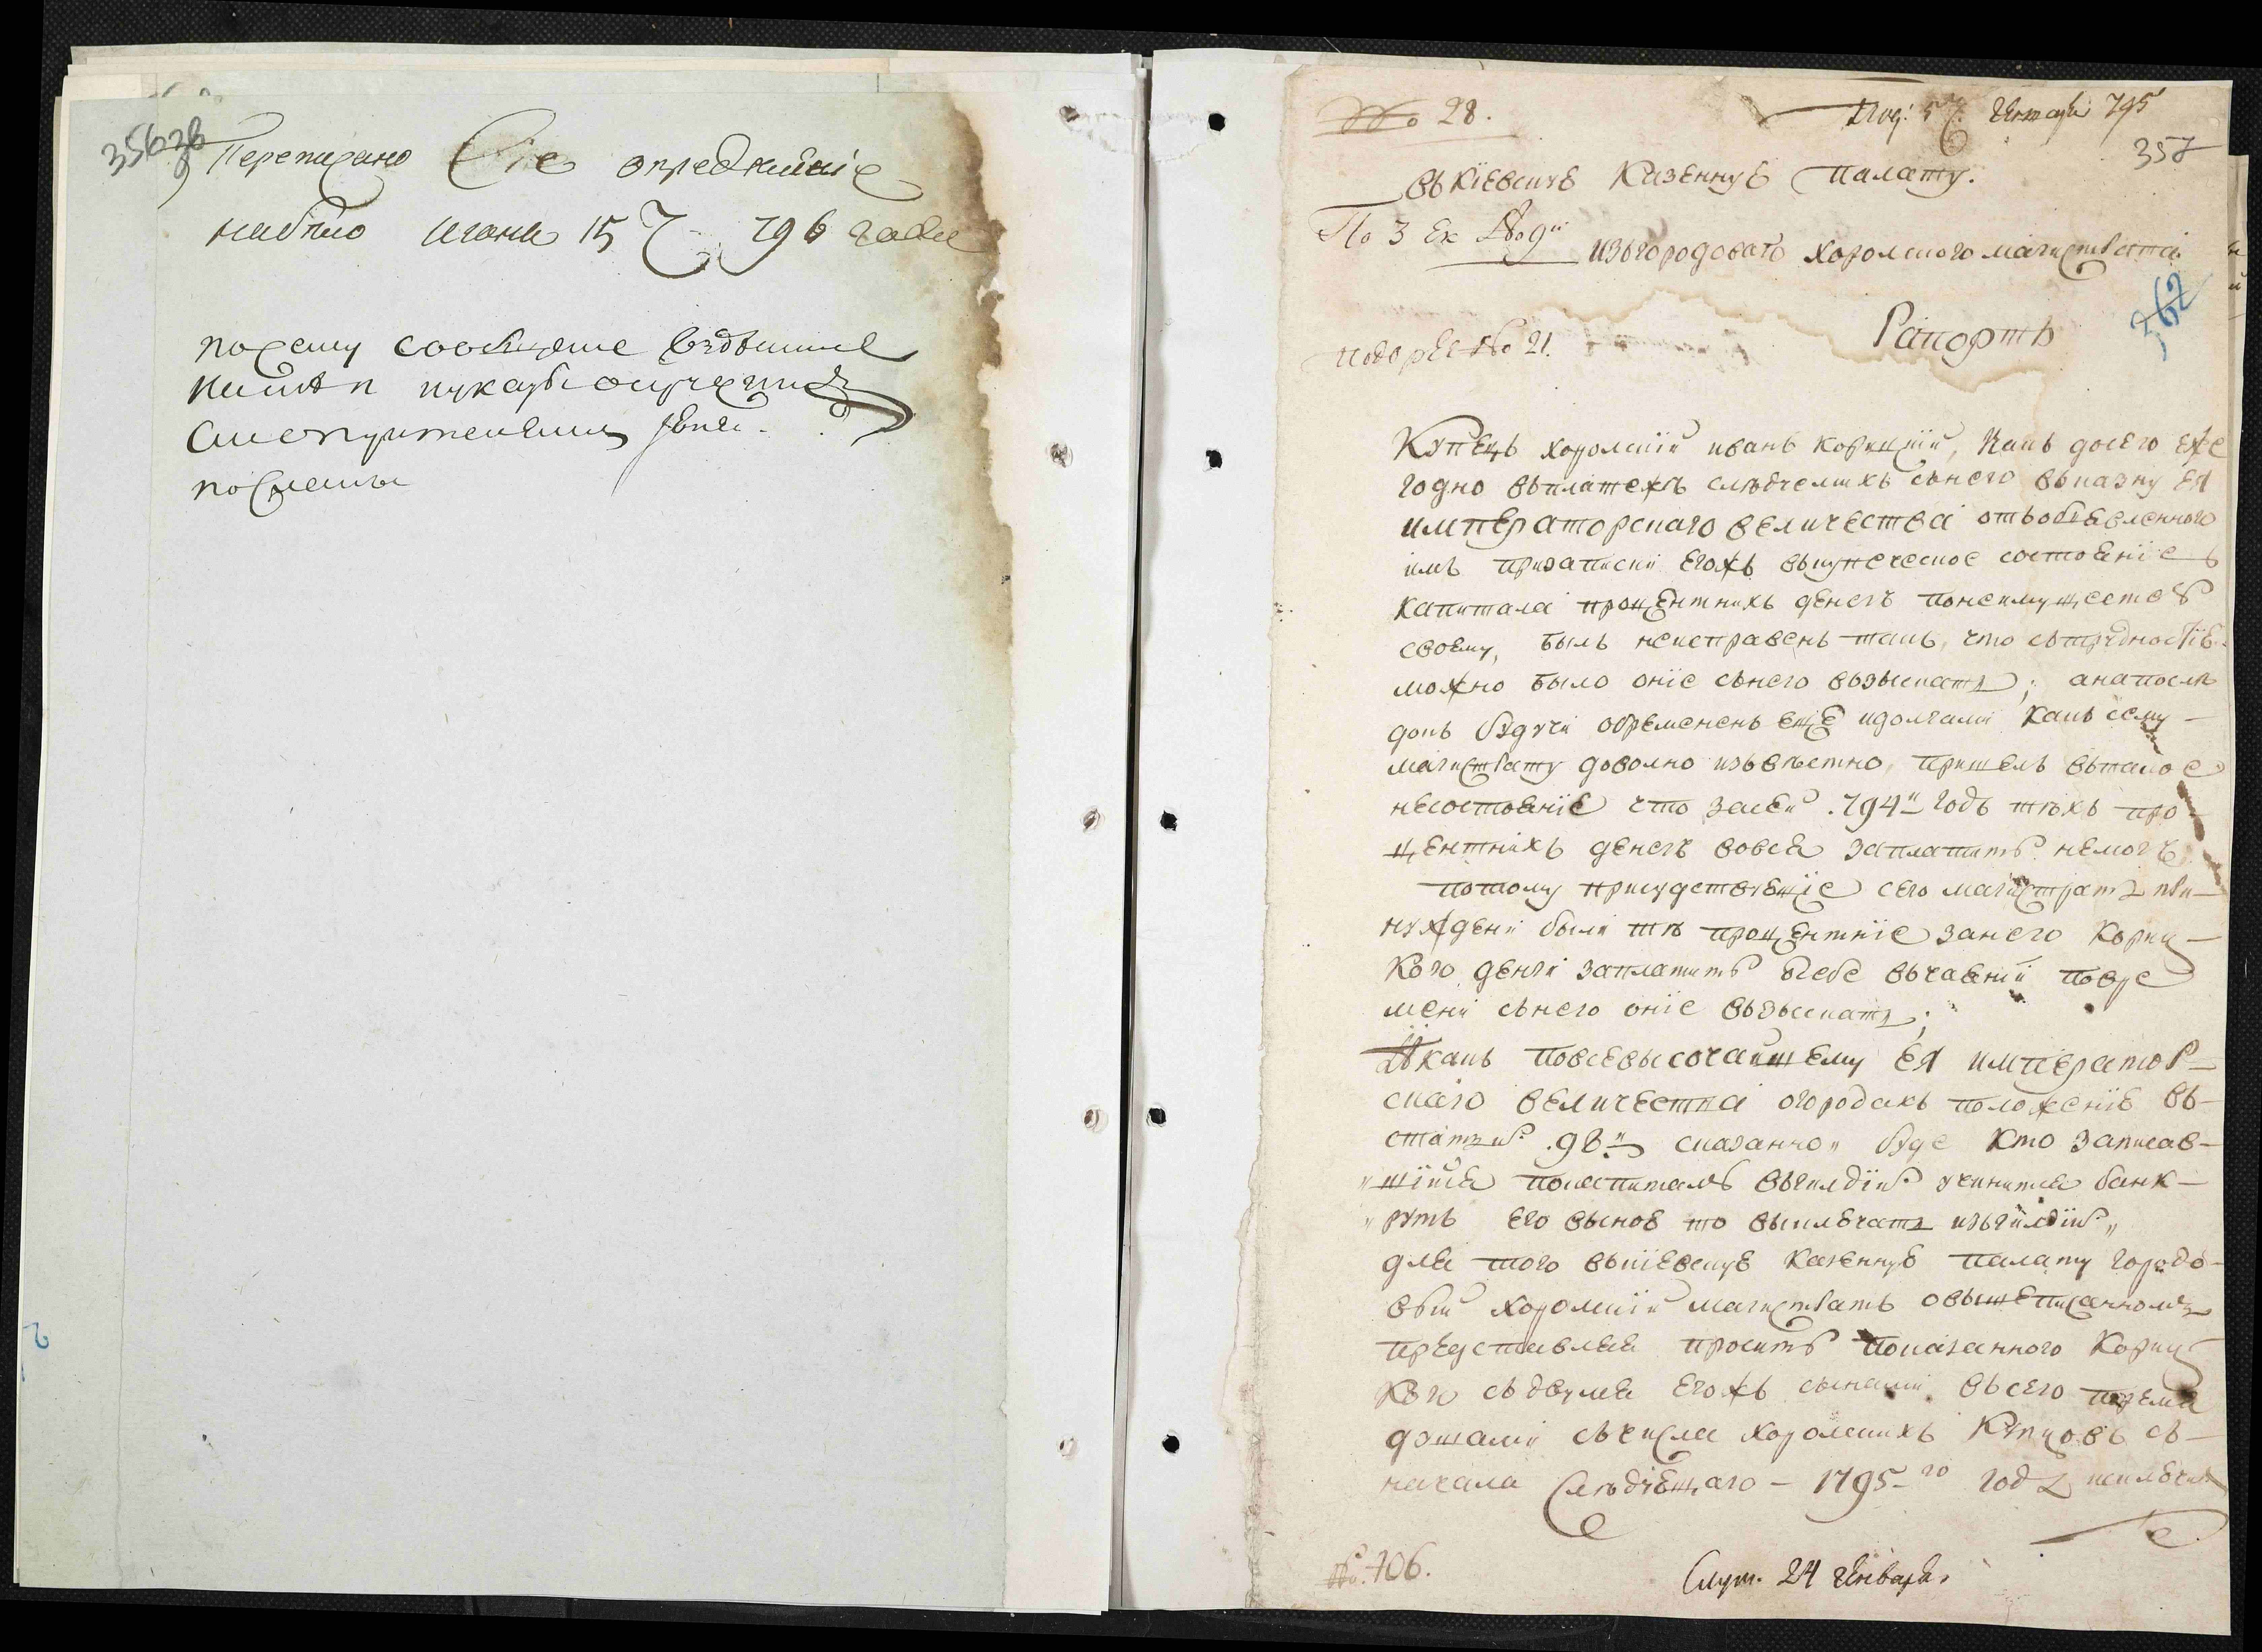 356 об
Переписано Сіе определеніе
набѣло июня 15 796 года
по сему сообщение
№ 28. Под: 5 генваря 795
357
въ Кїевскую Казенную Палату.
По 3 Ех № 9й изъ городового хоролского магистрата
362
Рапортъ
по № 21.
Купецъ хоролскїй иванъ корицкїй, какъ досего еже
годно въплатежѣ слѣдуемихъ снего въказну ея
императорского величества отъобъявленного
имъ призаписки егожъ въкупеческое состоянїе
капитала процентнихъ денегъ понеимуществу
своему, былъ неисправенъ такъ, что страдностїю
можно было онїе снего взыскать; анапослѣ
докъ будучи обремененъ еще идолгами какъ сему
магистрату доволно извѣстно, пришелъ въ такое
несостоянїе что засей 794й годъ тѣхъ про
центнихъ денегъ вовся заплатить немогъ.
потому присудствующїе сего магистрата при
нуждени были тѣ процентнїе занего Кориц
кого денги заплатить ссебе вчаянїи повре
мени снего онїе взыскать;
Акакъ повсевысочайшему Ея император
скаго величества огородахъ положенїю въ
статьи 98й сказанно „ буде кто записав
„ шїйся покапиталу въгилдїи учинится банк
„ рутъ его вынов то выключать изъгилдїи „
для того въкїевскую казенную палату городо
вый хоролскїй магистратъ овышеписанномъ
представляя проситъ показанного Кориц
кого сдвумя егожъ сынами, всего трема
душами счисла хоролскихъ Купцовъ съ
начала Слѣдующаго 1795го года исключить
№ 106. Слуш. 24 генваря.